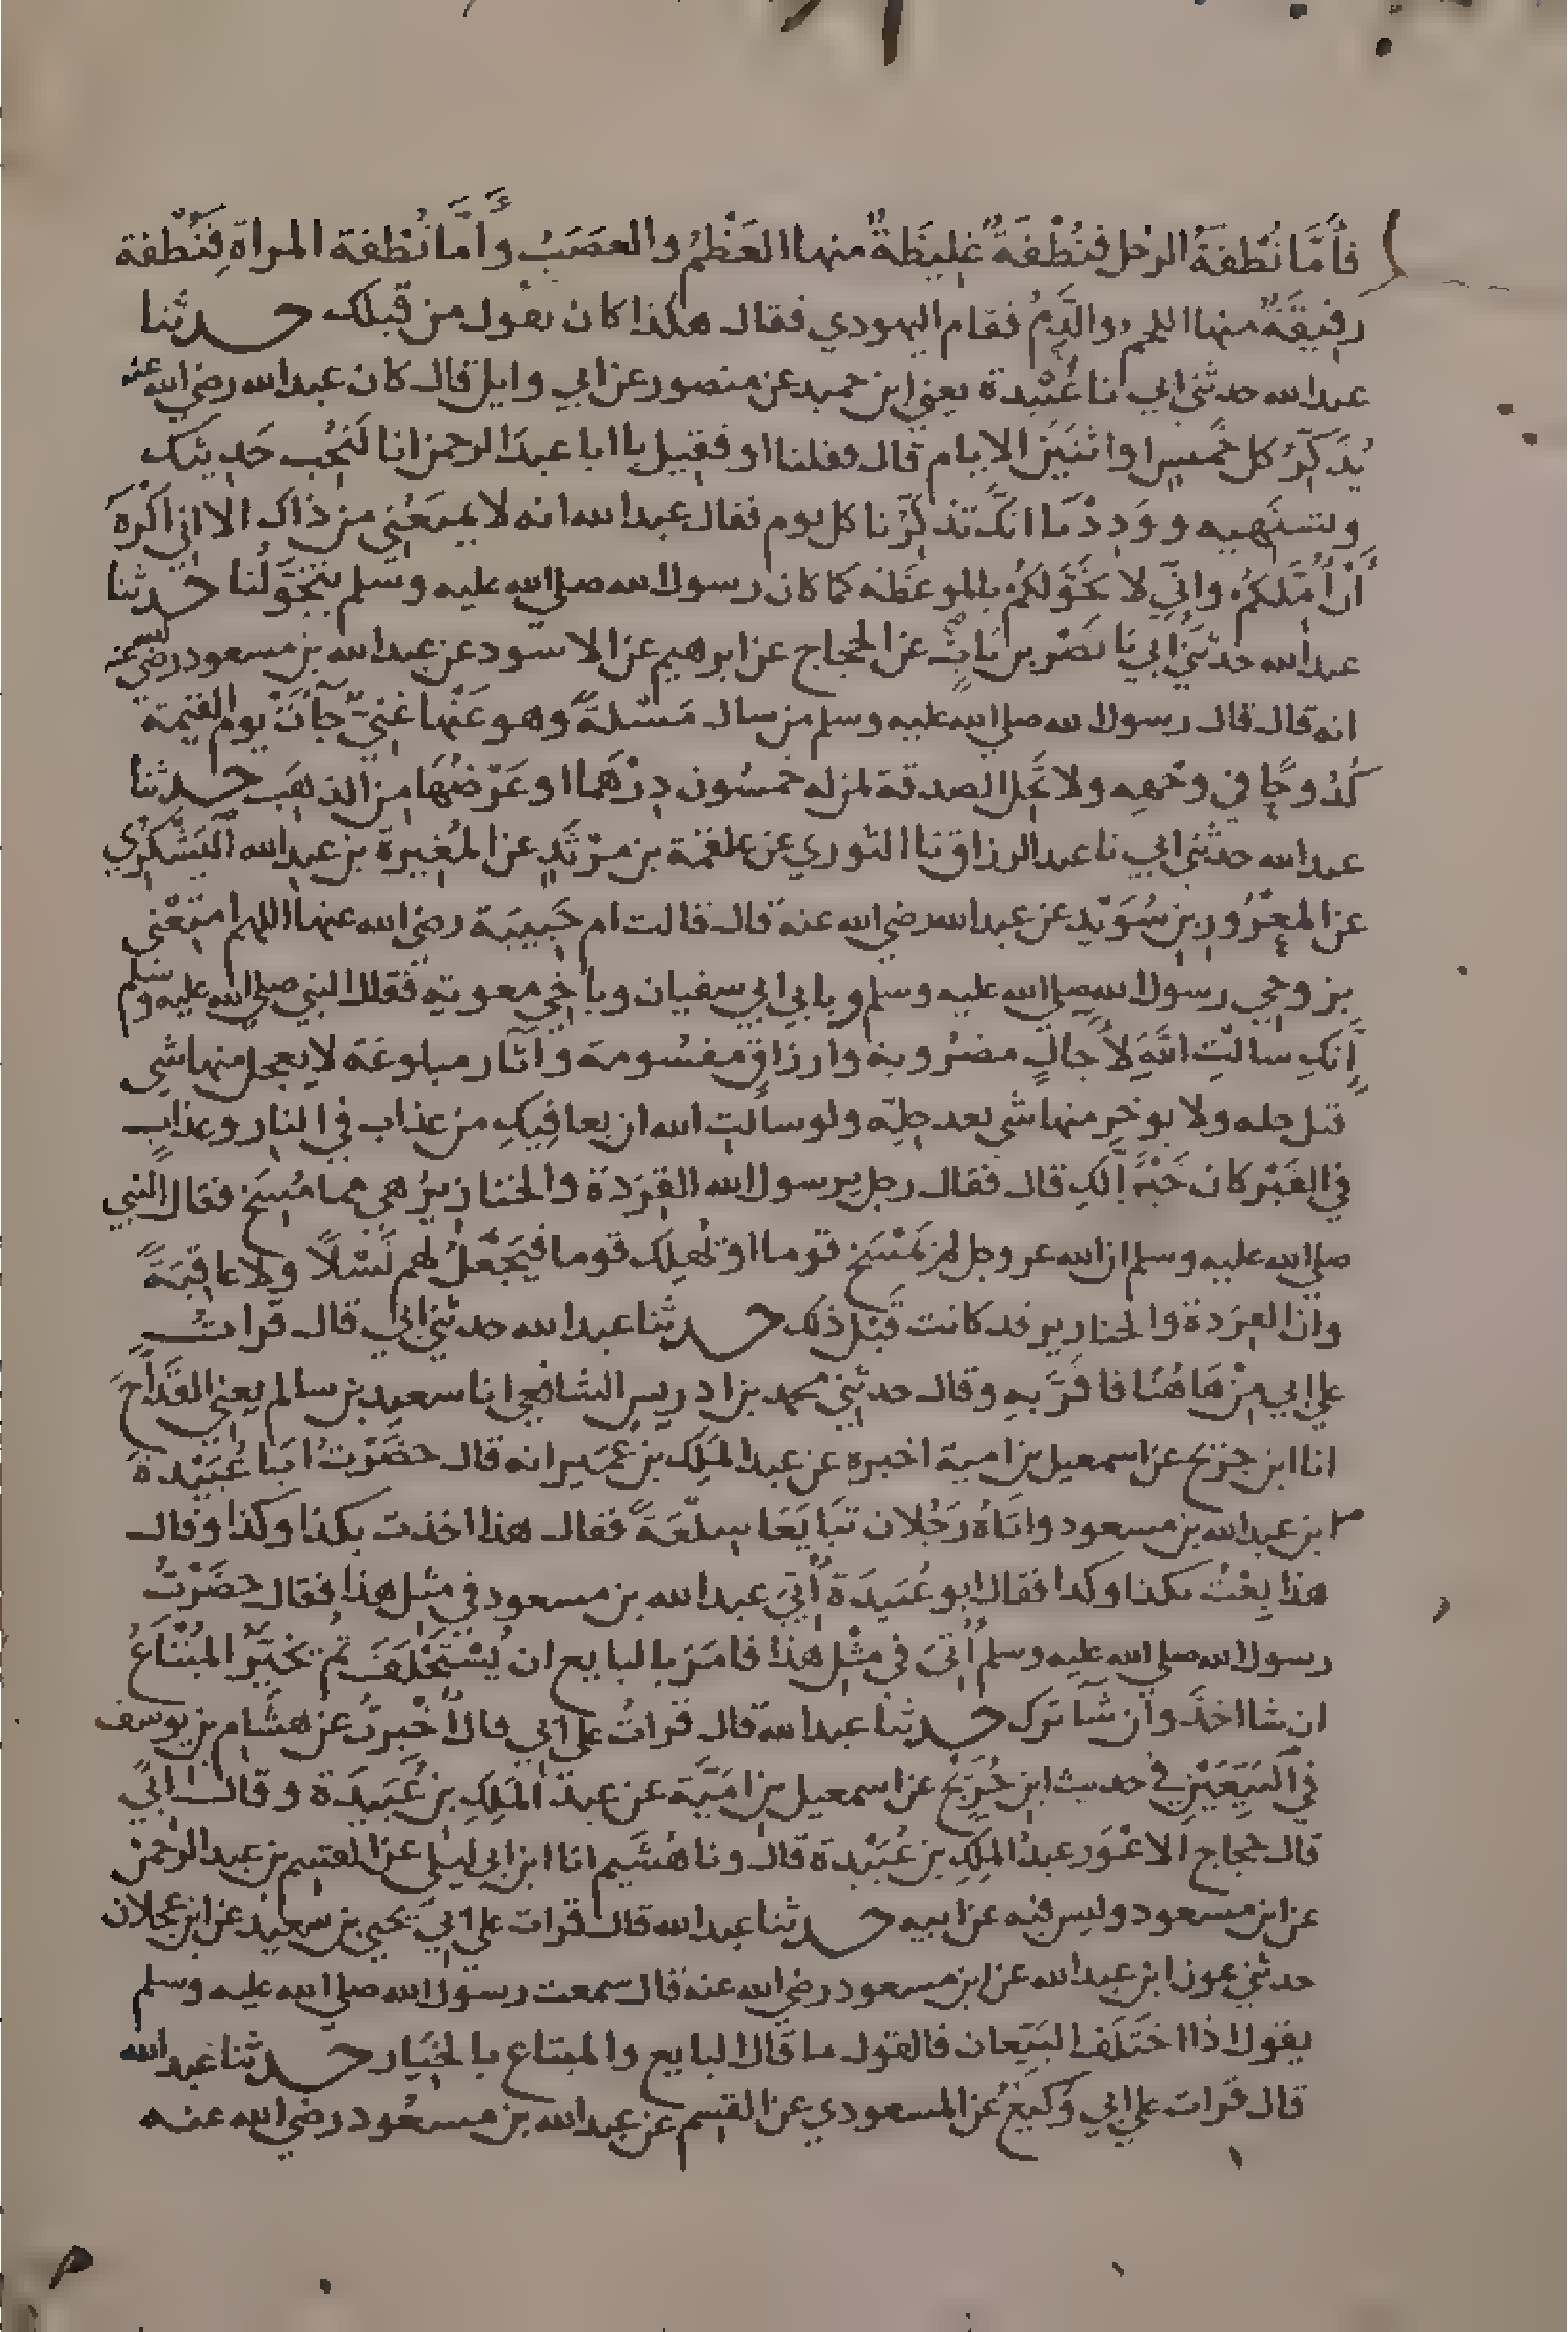 فأما نُطْفَةُ الرجل فنُطْفَةٌ غليظَةٌ منها العَظْمُ والعصَبُ وأمّا نُطفة المراة فنُطفة
رقيقَةٌ منها اللحم والدَّمُ فقام اليهودي فقال هكذا كان يقول من قبلك حدثنا
عبد الله حدثني ابي نا عُبَيْدة يعني ابن حميد عن منصور عن ابي وايل قال كان عبد الله رضي الله عنه
يُذَكِّرُ كل خميس او اثنَيْن الايام قال فقلنا او فقيل يا ابا عبدَ الرحمن انا لنُحِب حَديثك
ونشتَهيه ووَدِدْنا انك تذَكِّرُنا كل يوم فقال عبد الله انه لا يمنَعُني من ذاك الا اني اكْرهُ
أنْ أُمِلَّكُم وانّي لاتَخَوَّلكُم بالموعظه كما كان رسول الله صلى الله عليه وسلم يتخَوّلُنا حدثنا
عبد الله حدثني ابي نا نصْر بن بَابٍ عن الحجاج عن ابرهيم عن الاسود عن عبد الله بن مسعود رضي الله عنه
انه قال قال رسول الله صلى الله عليه وسلم من سال مَسْئلةً وهو عَنْها غنيٌّ جآتْ يوم القيمة
كُدُوحًا في وجهه ولا تَحِلُّ الصدقة لمن له خمسُون دِرْهَمًا او عَرْضُهَا من الذهَب حدثنا
عبد الله حدثني ابي نا عبد الرزاق نا الثوري عن علقمَة بن مَرْثَدٍ عن المُغِيرة بن عبد الله اليَشْكُرِي
عن المعْرُور بن سُوَيْد عن عبد الله رضي الله عنه قال قالت ام حَبِيبَة رضي الله عنها اللهم امتِعْني
بزوجي رسول الله صلى الله عليه وسلم وبابي ابي سفيان وباخي معوية فقال النبي صلى الله عليه وسلم
إنكِ سالتِ اللهَ لآجالٍ مضرُوبة وارزاقٍ مقسُومة وآثار مبلوغة لا يعجل منها شي
قبل حله ولا يوخر منها شي بعد حِلِّه ولو سالتِ الله ان يعافيكِ من عذاب في النار وعذابٍ
في القَبْر كان خَيْرًا لكِ قال فقال رجل يرسول الله القِرَدة والخنازيرُ هي مما مُسِخ فقال النبي
صلى الله عليه وسلم ان الله عز وجل لم يَمْسَخ قوما او يُهلِك قوما فيَجْعَلُ لهم نَسْلًا ولا عاقِبَةً
وان القِرَدة والخنازير قد كانت قبْل ذلك حدثنا عبد الله حدثني ابي قال قراتُ
على ابي مِنْ هَاهُنا فاقَرَّ بهِ وقال حدثني محمد بن ادريس الشافعي انا سعيد بن سالم يعني القدَّاح
انا ابن جريج عن اسمعيل بن امية اخبره عن عبد الملِك بن عُمَير انه قال حضَرْتُ ابا عُبَيْدة
ابن عبد الله بن مسعود واتاهُ رَجُلان تَبَايَعَا سِلْعَةً فقال هذا اخذت بكذا وكذا وقال
هذا بِعْتُ بكذا وكذا فقال ابو عُبَيدَة أُتِيَ عبد الله بن مسعود في مثل هذا فقال حضَرْتُ
رسول الله صلى الله عليه وسلم أُتِيَ في مثْل هذا فامَرَ بالبايع ان يُسْتَحْلَفَ ثم يُخَيَّرُ المُبْتاعُ
ان شا اخذَ وان شآ ترك حدثنا عبد الله قال قراتُ على ابي قال أُخْبِرتُ عن هشَام بن يوسف
في البَيِّعَيْنِ في حديث ابن جُرَيْج عن اسمعيل بن امَيَّة عن عبد المَلِكِ بن عُبَيدَة وقال ابي
قال حجاج الاعْوَر عبدُ الملِكِ بن عُبَيْدة قال ونا هُشَيم انا ابن ابي ليْلى عن القسم بن عبد الرحمن
عن ابن مسعود وليس فيه عن ابيه حدثنا عبد الله قال قرات على ابي يحيى بن سعيد عن ابن عجلان
حدثني عون ابن عبد الله عن ابن مسعود رضي الله عنه قال سمعت رسول الله صلى الله عليه وسلم
يقول اذا اختَلَف البَيِّعان فالقول ما قال البايع والمبتاع بالخِيَار حدثنا عبد الله
قال قرات على ابي وَكيع عن المسعودي عن القسم عن عبد الله بن مسعُود رضي الله عنه